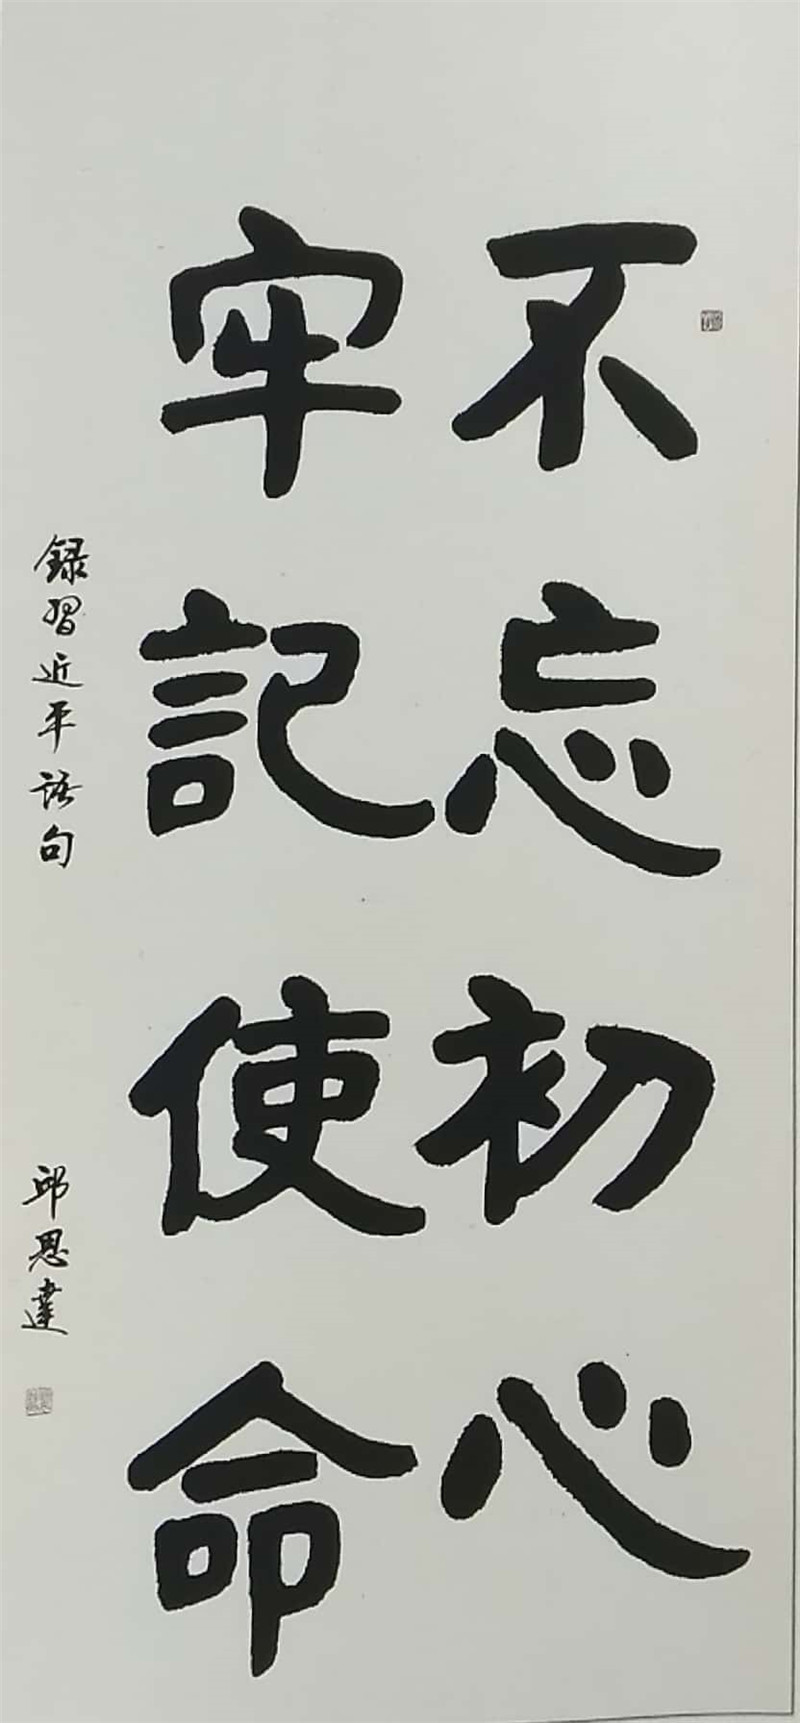 不忘初心
牢記使命
録習近平語句
邱恩達